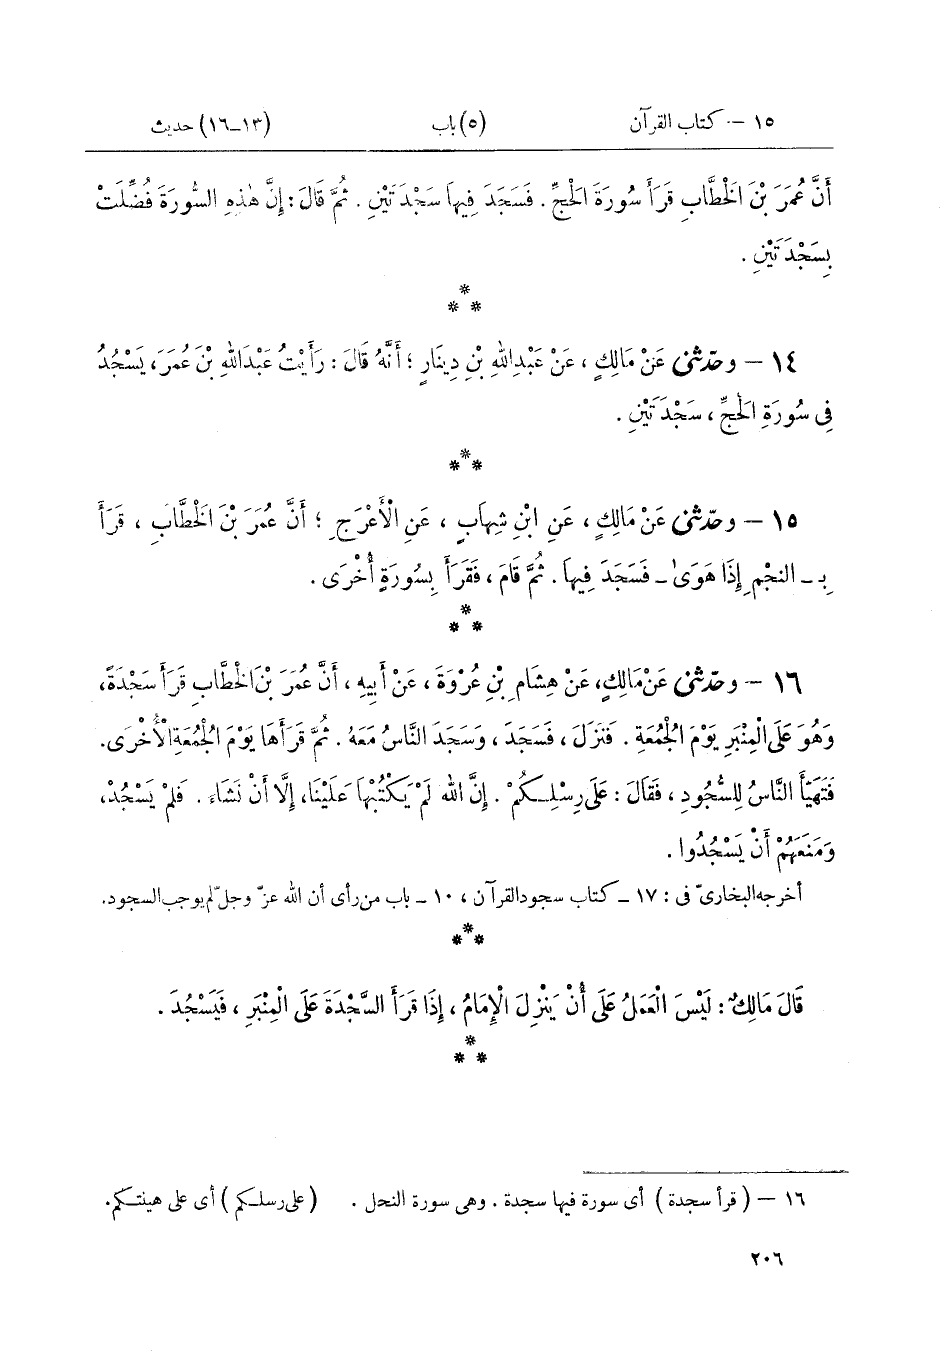 ١٥ – كتاب القرآن (٥) باب (١٣–١٦) حديث
أَنَّ عُمَرَ بْنَ الْخَطَّابِ قَرَأَ سُورَةَ الْحَجِّ . فَسَجَدَ فِيهَا سَجْدَتَيْنِ . ثُمَّ قَالَ : إِنَّ هٰذِهِ السُّورَةَ فُضِّلَتْ
بِسَجْدَتَيْنِ .
***
١٤ – وحدّثنى عَنْ مَالِكٍ ، عَنْ عَبْدِ اللهِ بْنِ دِينَارٍ ؛ أَنَّهُ قَالَ : رَأَيْتُ عَبْدَ اللهِ بْنَ عُمَرَ، يَسْجُدُ
فِى سُورَةِ الْحَجِّ ، سَجْدَتَيْنِ .
***
١٥ – وحدّثنى عَنْ مَالِكٍ ، عَنِ ابْنِ شِهَابٍ ، عَنِ الْأَعْرَجِ ؛ أَنَّ عُمَرَ بْنَ الْخَطَّابِ ، قَرَأَ
بِـ – النجْمِ إِذَا هَوَىٰ – فَسَجَدَ فِيهَا . ثُمَّ قَامَ ، فَقَرَأَ بِسُورَةٍ أُخْرَى .
***
١٦ – وحدّثنى عَنْ مَالِكٍ، عَنْ هِشَامِ بْنِ عُرْوَةَ ، عَنْ أَبِيهِ ، أَنَّ عُمَرَ بْنَ الْخَطَّابِ قَرَأَ سَجْدَةً،
وَهُوَ عَلَى الْمِنْبَرِ يَوْمَ الْجُمُعَةِ . فَنَزَلَ ، فَسَجَدَ ، وَسَجَدَ النَّاسُ مَعَهُ . ثُمَّ قَرَأَهَا يَوْمَ الْجُمُعَةِ الْأُخْرَى.
فَتَهَيَّأَ النَّاسُ لِلسُّجُودِ ، فَقَالَ : عَلَى رِسْلِكُمْ . إِنَّ اللهَ لَمْ يَكْتُبْهَا عَلَيْنَا، إِلَّا أَنْ نَشَاءَ . فَلَمْ يَسْجُدْ،
وَمَنَعَهُمْ أَنْ يَسْجُدُوا .
أخرجه البخارىّ فى : ١٧ – كتاب سجود القرآن ، ١٠ – باب من رأى أن الله عزّ وجلّ لم يوجب السجود.
***
قَالَ مَالِكٌ : لَيْسَ الْعَمَلُ عَلَى أَنْ يَنْزِلَ الْإِمَامُ ، إِذَا قَرَأَ السَّجْدَةَ عَلَى الْمِنْبَرِ ، فَيَسْجُدَ .
***
١٦ – ( قرأ سجدة ) أى سورة فيها سجدة . وهى سورة النحل . ( على رسلكم ) أى على هينتكم.
٢٠٦